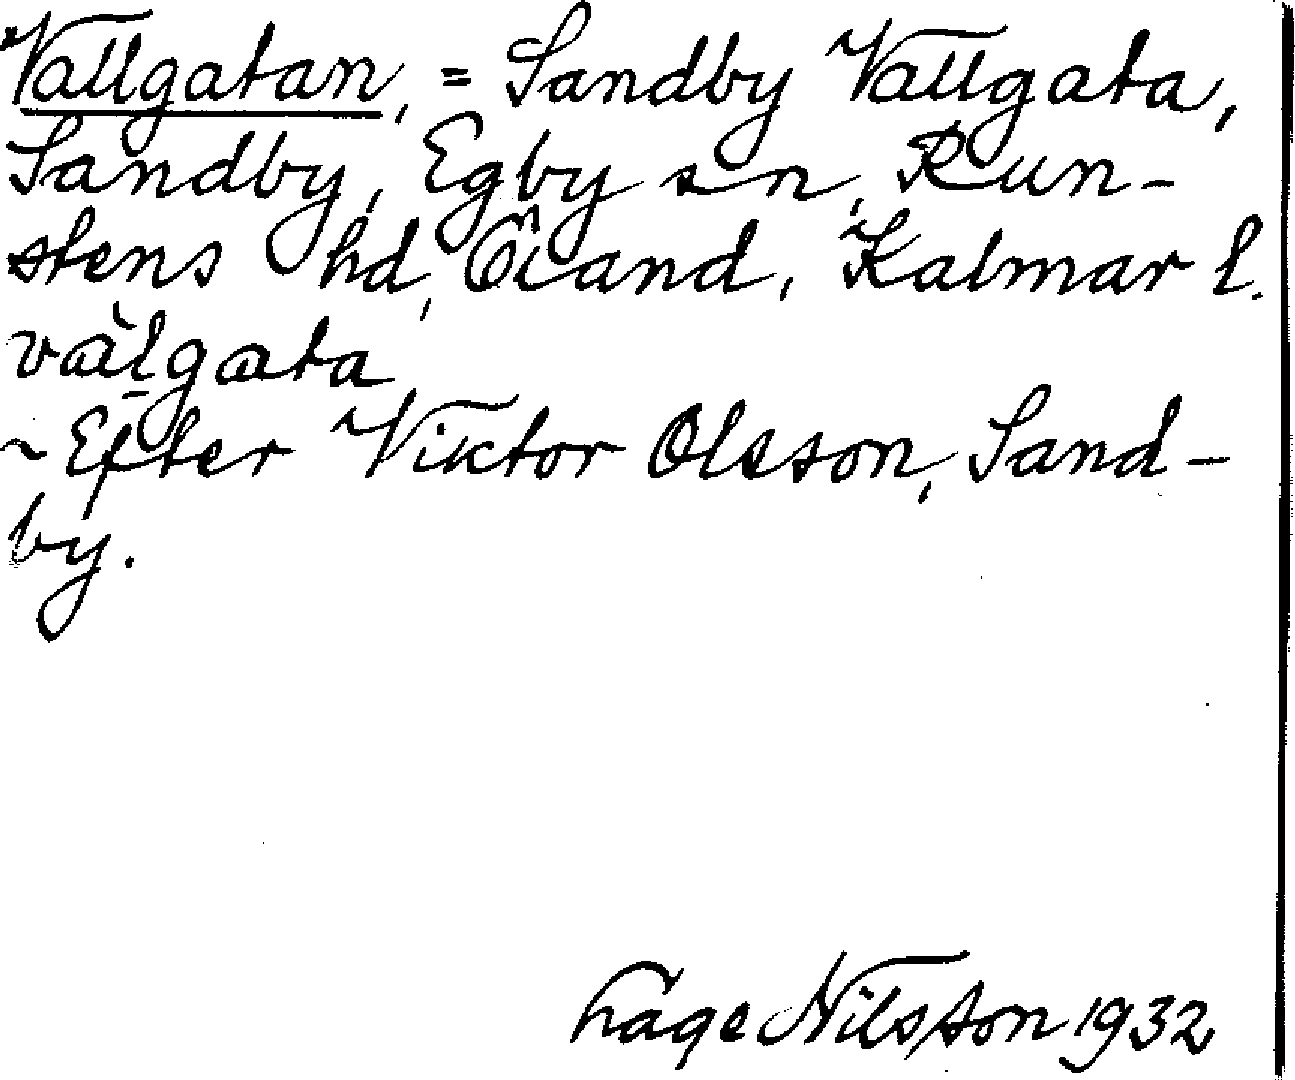 Vallgatan, = Sandby Vallgata,
Sandby, Egby sn, Run-
stens hd, Öland, Kalmar l.
vàl̠gata
~ Efter Viktor Olsson, Sand-
by.
Lage Nilsson 1932